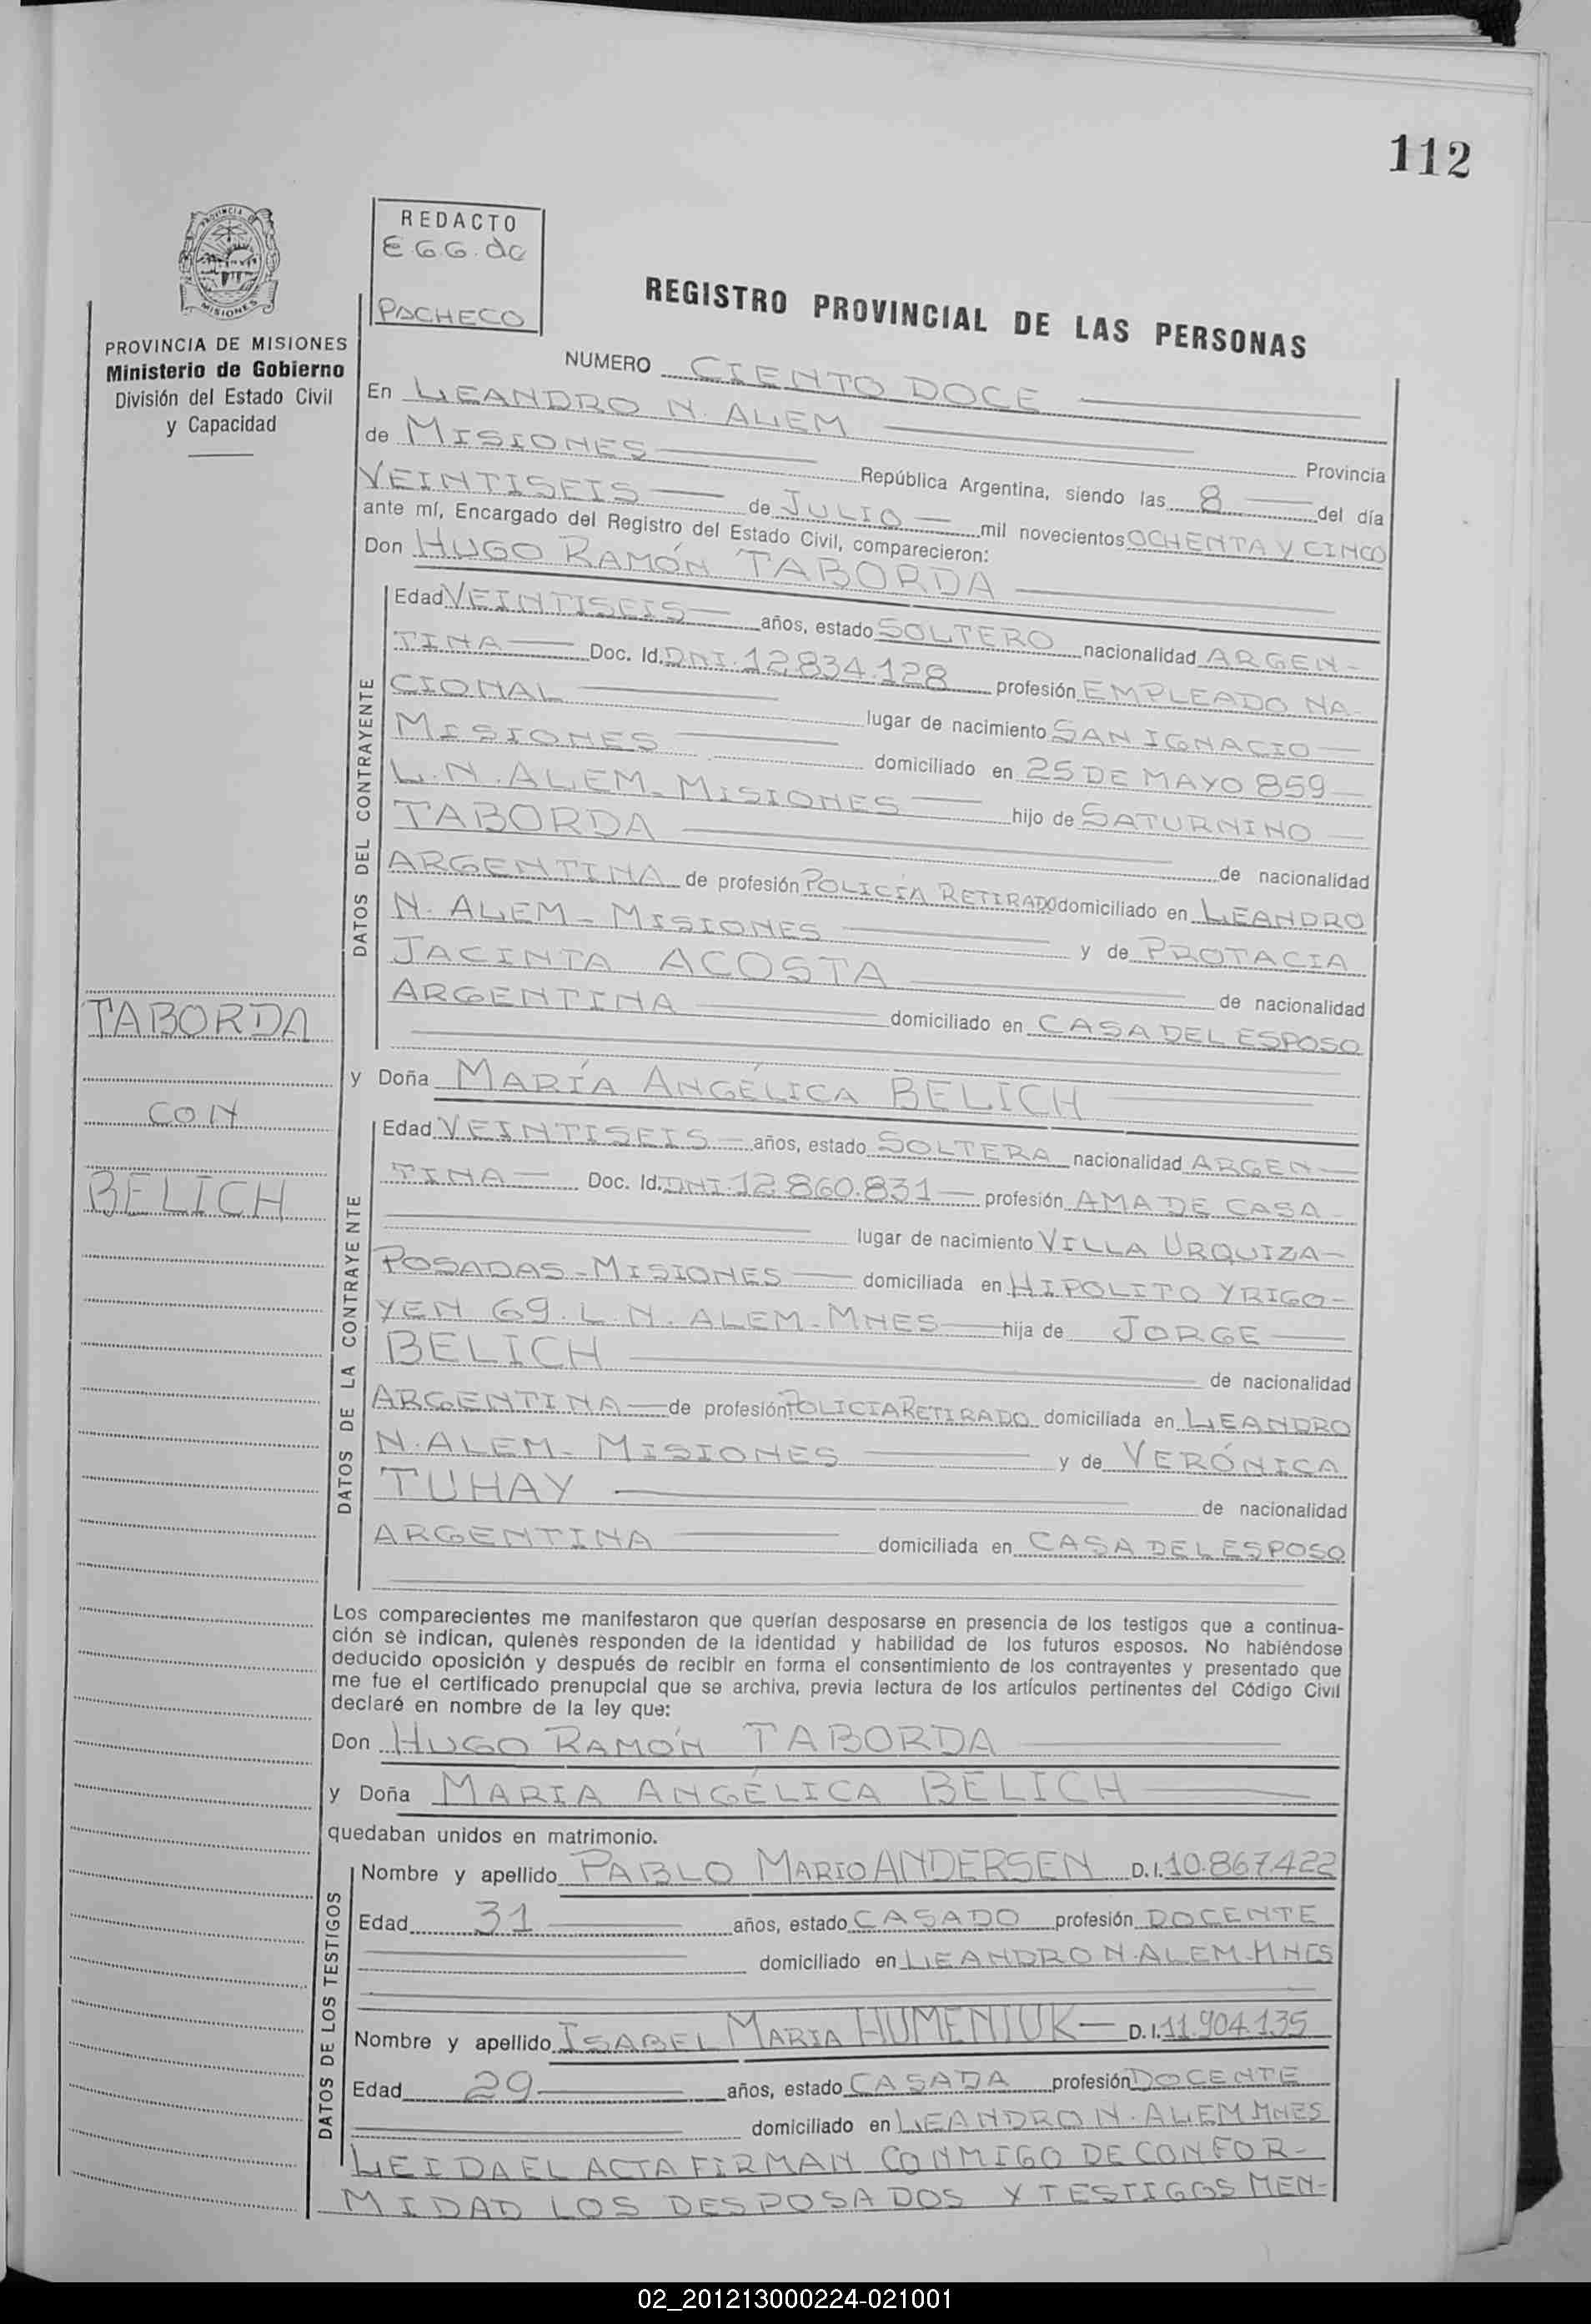 112
PROVINCIA DE MISIONES
PROVINCIA DE MISIONES
Ministerio de Gobierno
División del Estado Civil
y Capacidad
REDACTO
E.G.G. de
PACHECO
REGISTRO PROVINCIAL DE LAS PERSONAS
NUMERO CIENTO DOCE
En LEANDRO N. ALEM Provincia
de MISIONES República Argentina, siendo las 8 del día
VEINTISEIS de JULIO mil novecientos OCHENTA Y CINCO
ante mí, Encargado del Registro del Estado Civil, comparecieron:
Don HUGO RAMÓN TABORDA
DATOS DEL CONTRAYENTE
Edad VEINTISEIS años, estado SOLTERO nacionalidad ARGEN-
TINA Doc. Id. DNI. 12.834.128 profesión EMPLEADO NA-
CIONAL lugar de nacimiento SAN IGNACIO
MISIONES domiciliado en 25 DE MAYO 859
L.N. ALEM-MISIONES hijo de SATURNINO
TABORDA de nacionalidad
ARGENTINA de profesión POLICÍA RETIRADO domiciliado en LEANDRO
N. ALEM-MISIONES y de PROTACIA
JACINTA ACOSTA de nacionalidad
ARGENTINA domiciliado en CASA DEL ESPOSO
TABORDA
CON
BELICH
y Doña MARÍA ANGÉLICA BELICH
DATOS DE LA CONTRAYENTE
Edad VEINTISEIS años, estado SOLTERA nacionalidad ARGEN-
TINA Doc. Id. DNI. 12.860.831 profesión AMA DE CASA
lugar de nacimiento VILLA URQUIZA-
POSADAS-MISIONES domiciliada en HIPOLITO YRIGO-
YEN 69. L.N. ALEM-MNES hija de JORGE
BELICH de nacionalidad
ARGENTINA de profesión POLICIA RETIRADO domiciliada en LEANDRO
N. ALEM-MISIONES y de VERÓNICA
TUHAY de nacionalidad
ARGENTINA domiciliada en CASA DEL ESPOSO
Los comparecientes me manifestaron que querían desposarse en presencia de los testigos que a continua-
ción se indican, quienes responden de la identidad y habilidad de los futuros esposos. No habiéndose
deducido oposición y después de recibir en forma el consentimiento de los contrayentes y presentado que
me fue el certificado prenupcial que se archiva, previa lectura de los artículos pertinentes del Código Civil
declaré en nombre de la ley que:
Don HUGO RAMÓN TABORDA
y Doña MARIA ANGÉLICA BELICH
quedaban unidos en matrimonio.
DATOS DE LOS TESTIGOS
Nombre y apellido PABLO MARIO ANDERSEN D.I. 10.867.422
Edad 31 años, estado CASADO profesión DOCENTE
domiciliado en LEANDRO N. ALEM-MNES
Nombre y apellido ISABEL MARIA HUMENIUK D.I. 11.904.135
Edad 29 años, estado CASADA profesión DOCENTE
domiciliado en LEANDRO N. ALEM MNES
LEIDA EL ACTA FIRMAN CONMIGO DE CONFOR-
MIDAD LOS DESPOSADOS Y TESTIGOS MEN-
02_201213000224-021001